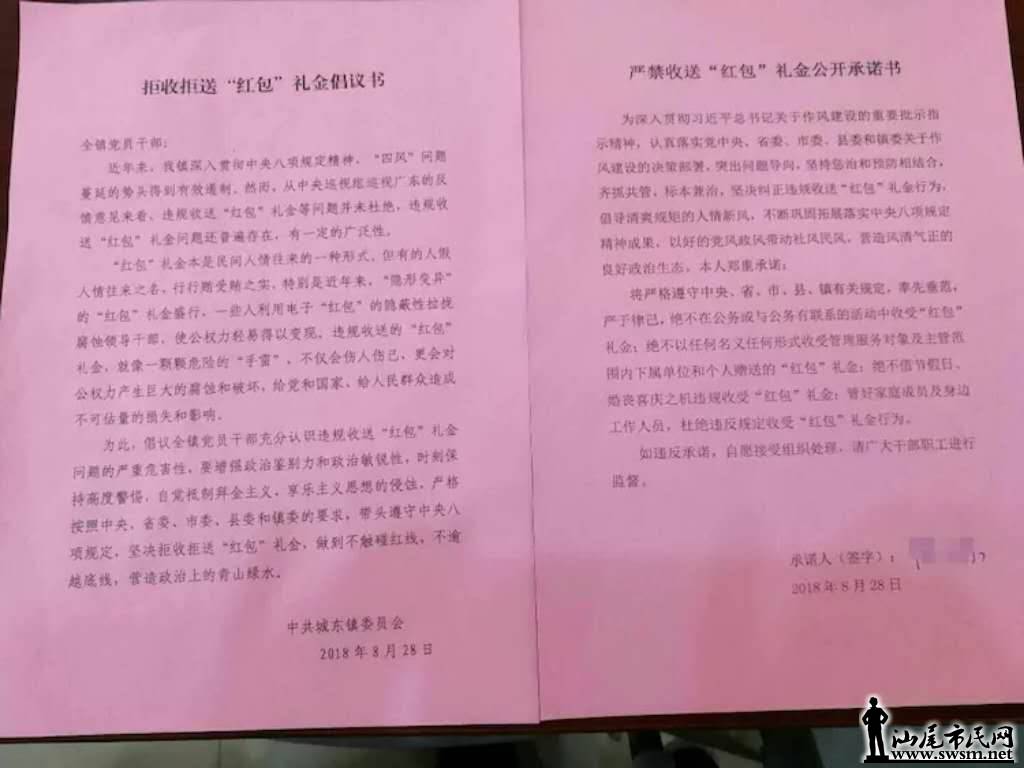 拒收拒送“红包”礼金倡议书
全镇党员干部：
近年来，我镇深入贯彻中央八项规定精神，“四风”问题
蔓延的势头得到有效遏制。然而，从中央巡视组巡视广东的反
馈意见来看，违规收送“红包”礼金等问题并未杜绝，违规收
送“红包”礼金问题还普遍存在，有一定的广泛性。
“红包”礼金本是民间人情往来的一种形式，但有的人假
人情往来之名，行行贿受贿之实，特别是近年来，“隐形变异”
的“红包”礼金盛行，一些人利用电子“红包”的隐蔽性拉拢
腐蚀领导干部，使公权力轻易得以变现。违规收送的“红包”
礼金，就像一颗颗危险的“手雷”，不仅会伤人伤己，更会对
公权力产生巨大的腐蚀和破坏，给党和国家、给人民群众造成
不可估量的损失和影响。
为此，倡议全镇党员干部充分认识违规收送“红包”礼金
问题的严重危害性，要增强政治鉴别力和政治敏锐性，时刻保
持高度警惕，自觉抵制拜金主义、享乐主义思想的侵蚀，严格
按照中央、省委、市委、县委和镇委的要求，带头遵守中央八
项规定，坚决拒收拒送“红包”礼金，做到不触碰红线，不逾
越底线，营造政治上的青山绿水。
中共城东镇委员会
2018年8月28日
严禁收送“红包”礼金公开承诺书
为深入贯彻习近平总书记关于作风建设的重要批示指
示精神，认真落实党中央、省委、市委、县委和镇委关于作
风建设的决策部署，突出问题导向，坚持惩治和预防相结合，
齐抓共管，标本兼治，坚决纠正违规收送“红包”礼金行为，
倡导清爽规矩的人情新风，不断巩固拓展落实中央八项规定
精神成果，以好的党风政风带动社风民风，营造风清气正的
良好政治生态，本人郑重承诺：
将严格遵守中央、省、市、县、镇有关规定，率先垂范，
严于律己，绝不在公务或与公务有联系的活动中收受“红包”
礼金；绝不以任何名义任何形式收受管理服务对象及主管范
围内下属单位和个人赠送的“红包”礼金；绝不借节假日、
婚丧喜庆之机违规收受“红包”礼金；管好家庭成员及身边
工作人员，杜绝违反规定收受“红包”礼金行为。
如违反承诺，自愿接受组织处理，请广大干部职工进行
监督。
承诺人（签字）：
2018年8月28日
汕尾市民网
www.swsm.net